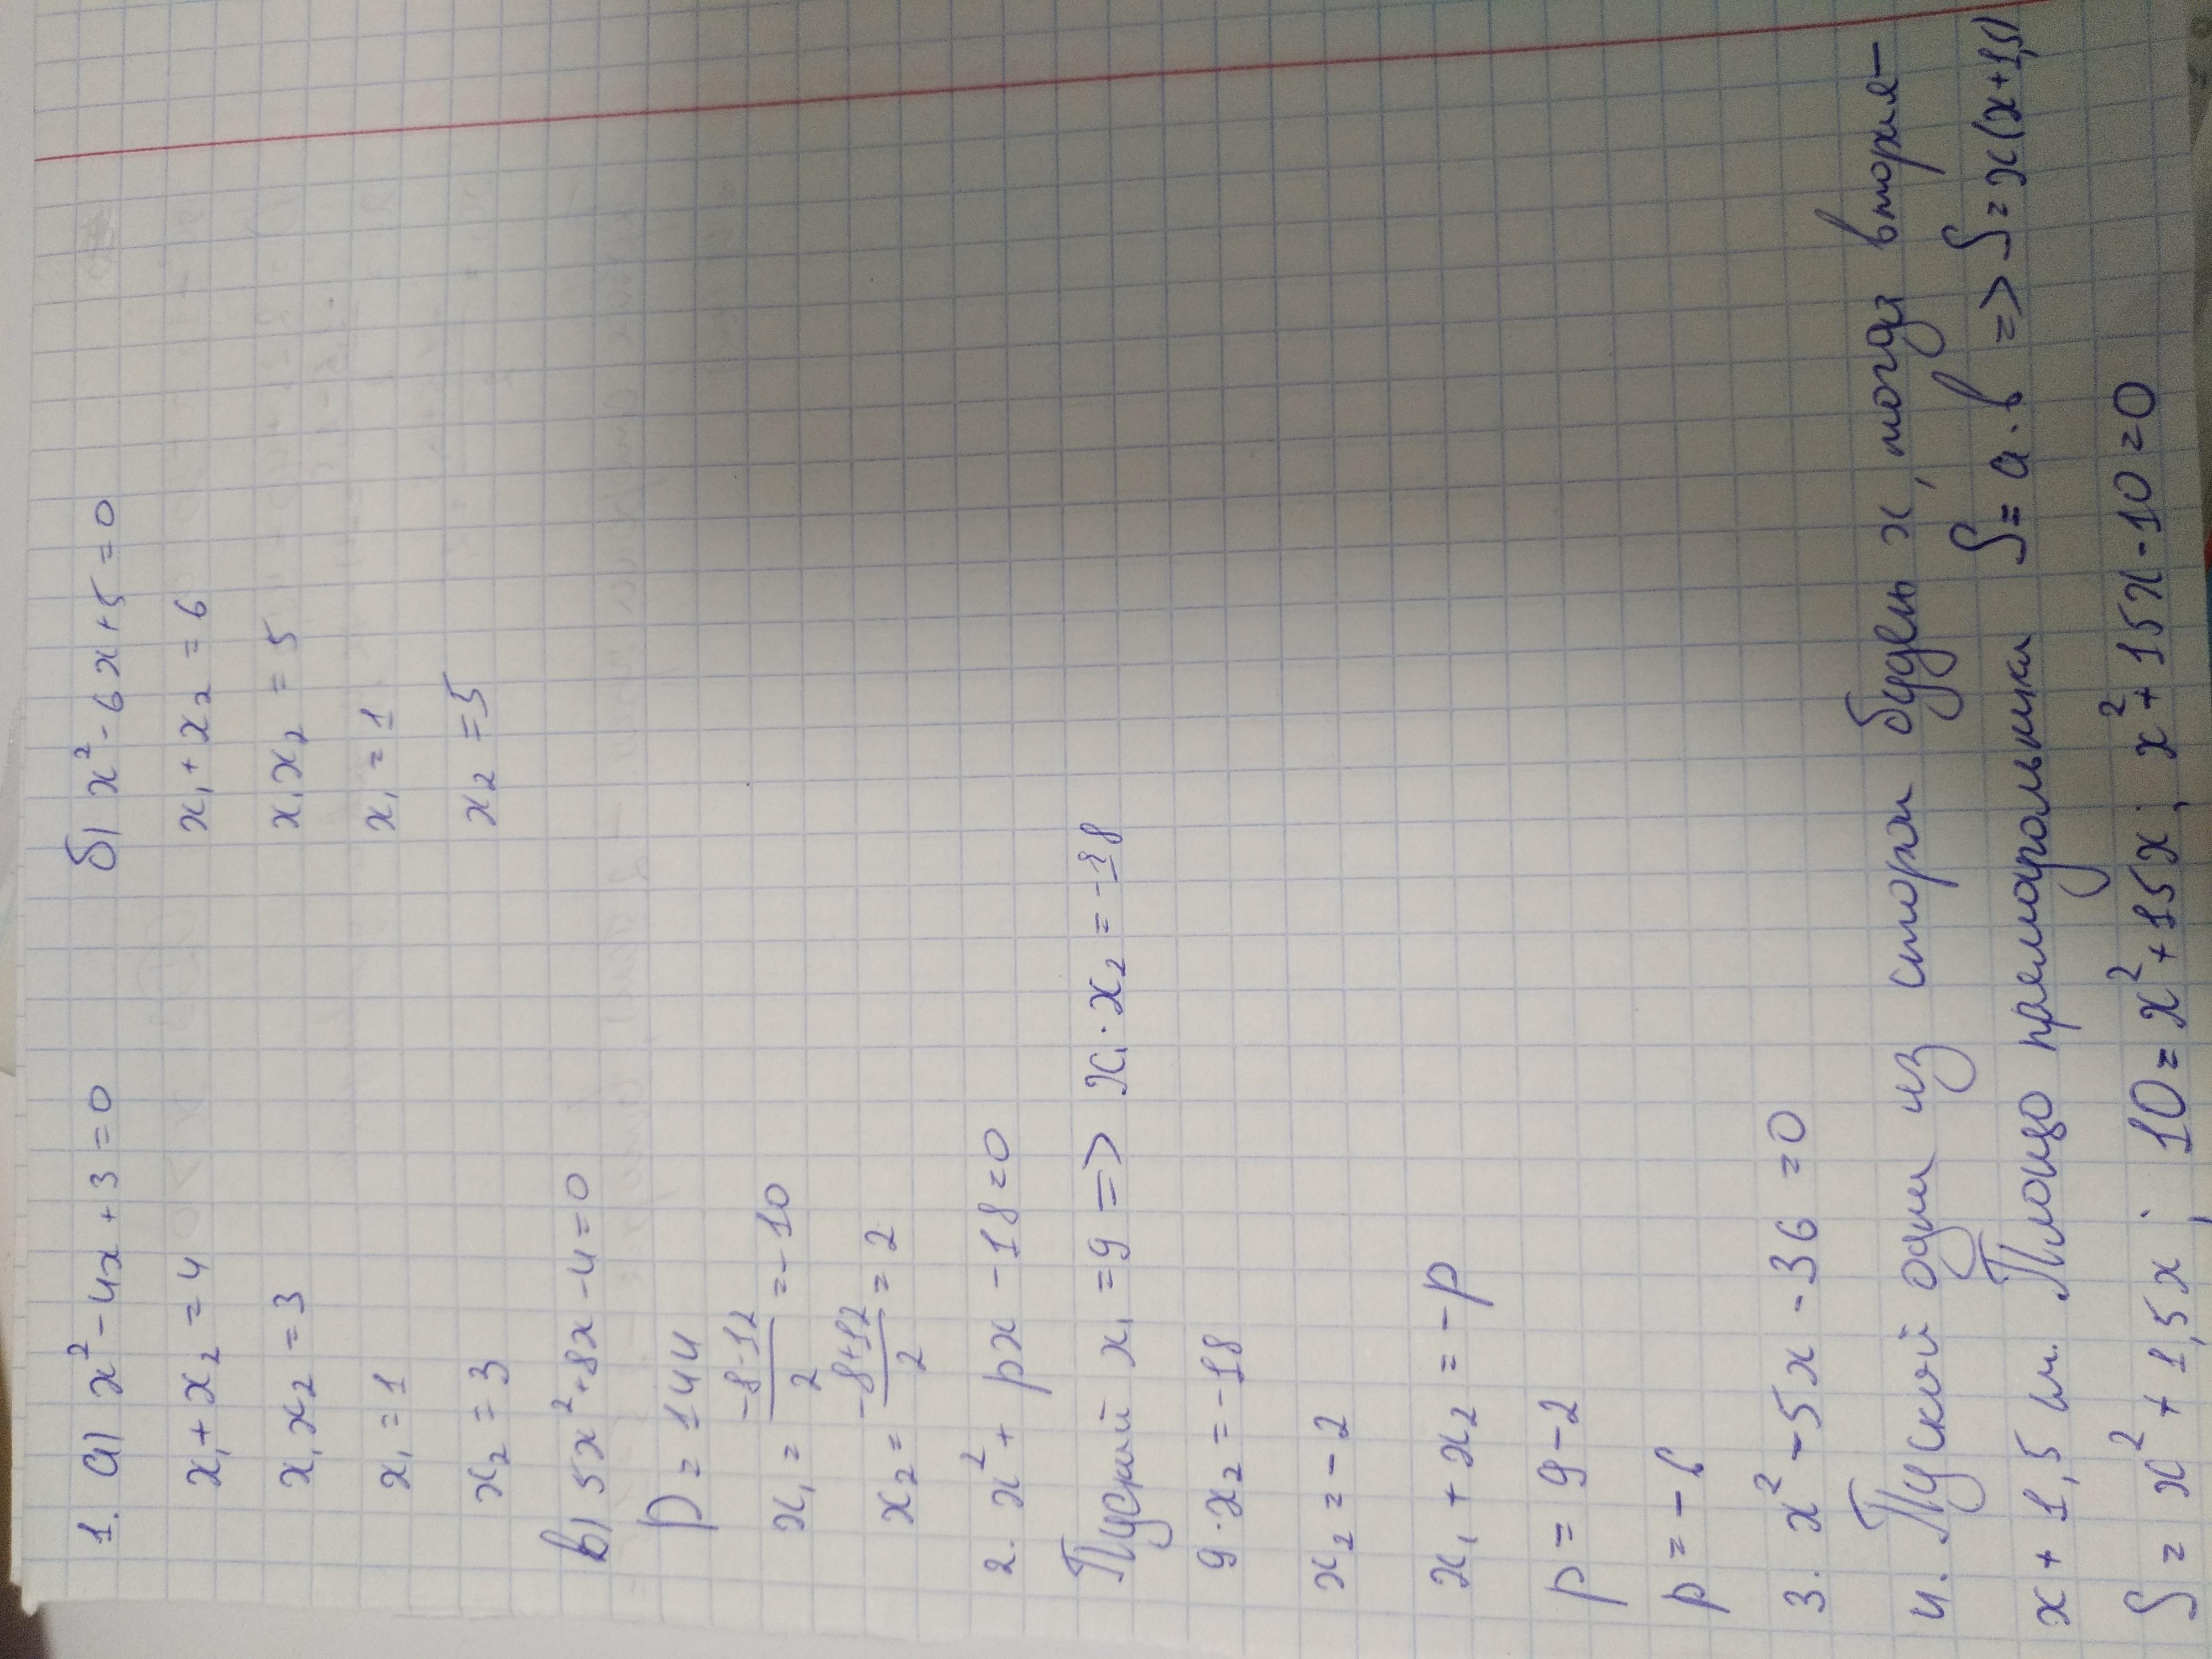 1. а) x² - 4x + 3 = 0
x₁ + x₂ = 4
x₁x₂ = 3
x₁ = 1
x₂ = 3
б) x² - 6x + 5 = 0
x₁ + x₂ = 6
x₁x₂ = 5
x₁ = 1
x₂ = 5
в) 5x² + 8x - 4 = 0
D = 144
x₁ = (-8-12)/2 = -10
x₂ = (-8+12)/2 = 2
2. x² + px - 18 = 0
Пускай x₁ = 9 => x₁ · x₂ = -18
9 · x₂ = -18
x₂ = -2
x₁ + x₂ = -p
p = 9 - 2
3. x² - 5x - 36 = 0
4. Пускай один из сторон будет x, тогда вторая -
x + 1,5 см. Площадь прямоугольника S = a · b => S = x(x+1,5)
S = x² + 1,5x ; 10 = x² + 15x ; x² + 15x - 10 = 0